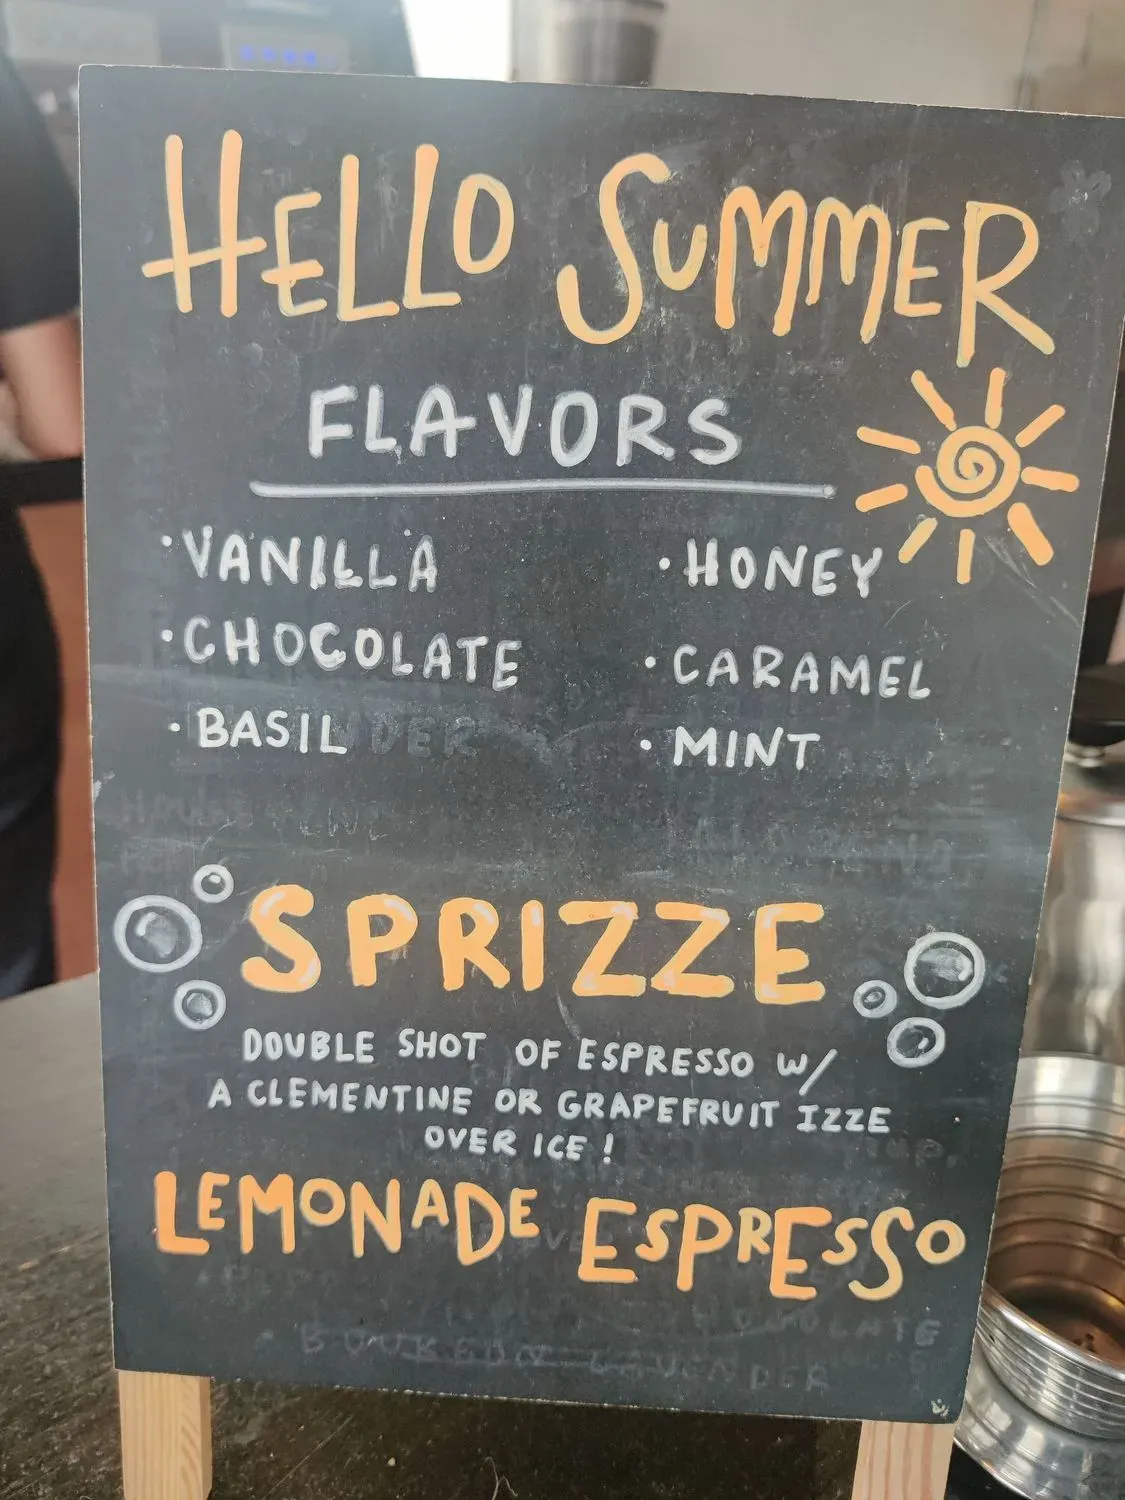 HELLO SUMMER
FLAVORS
·VANILLA ·HONEY
·CHOCOLATE ·CARAMEL
·BASIL ·MINT
SPRIZZE
DOUBLE SHOT OF ESPRESSO W/
A CLEMENTINE OR GRAPEFRUIT IZZE
OVER ICE!
LEMONADE ESPRESSO